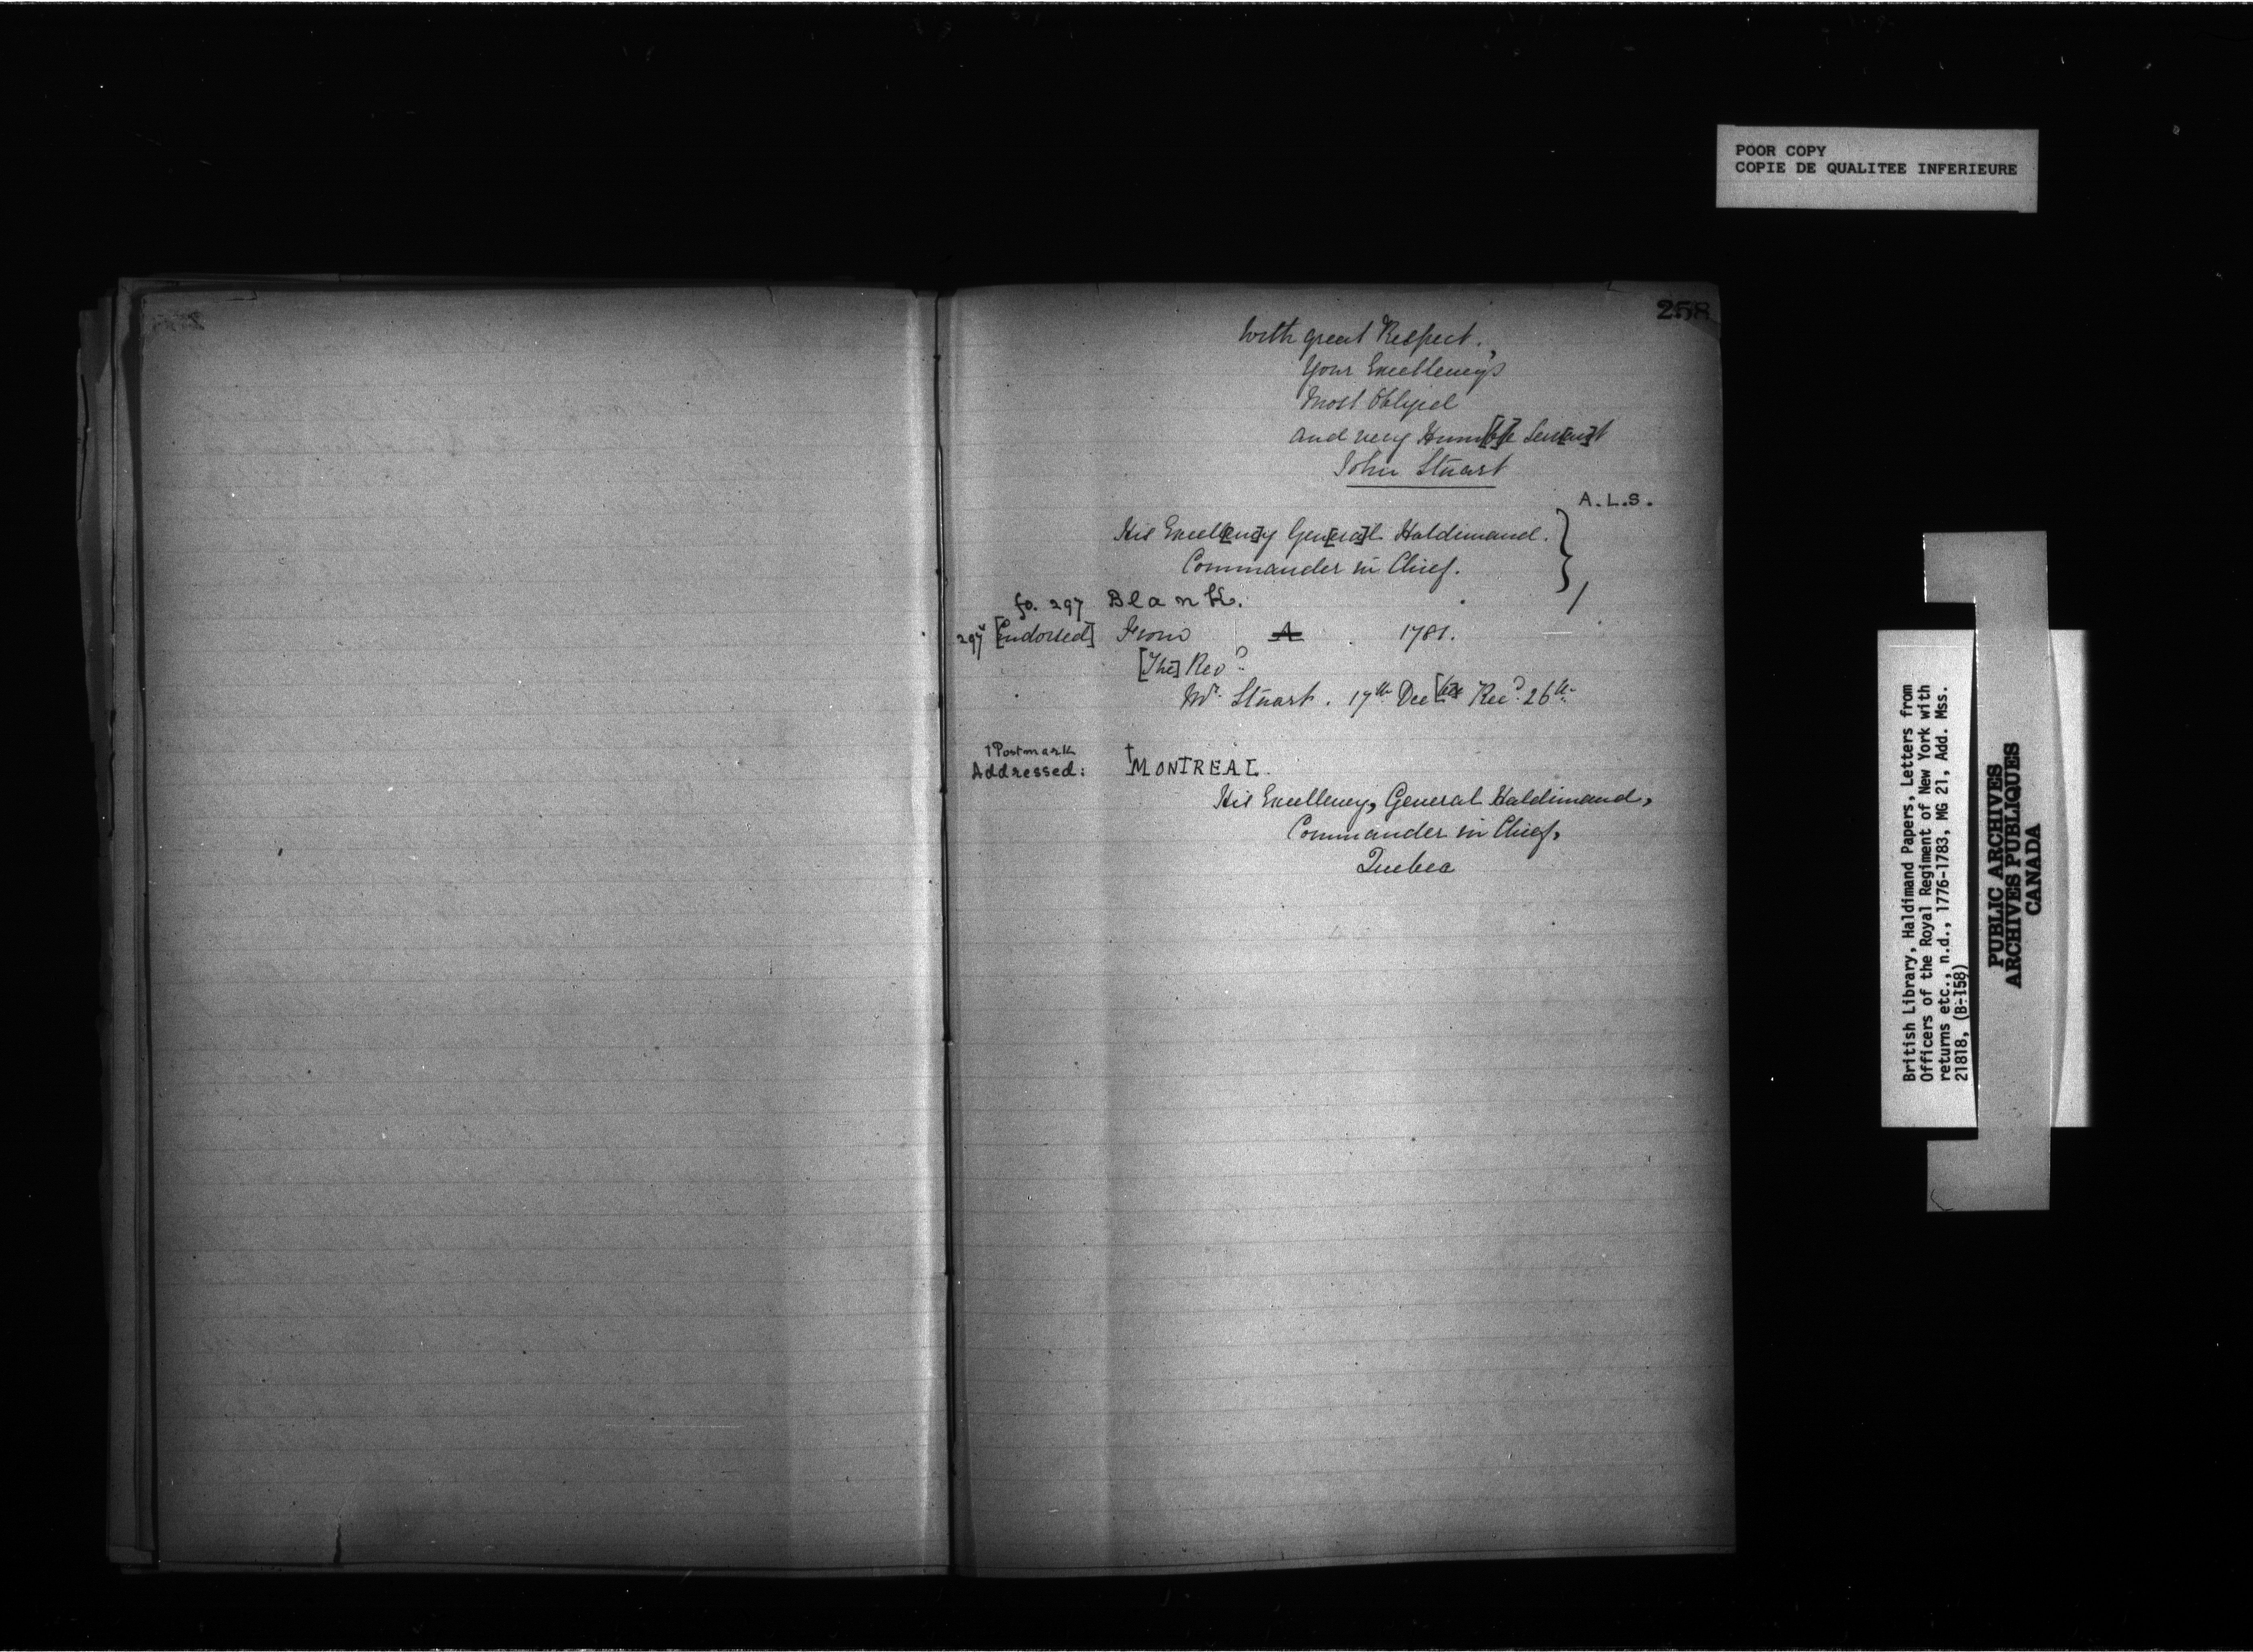 POOR COPY
COPIE DE QUALITEE INFERIEURE
258
With great Respect.,
Your Excellency's
Most Obliged
and very Humb[l]e Serv[an]t
John Stuart
A.L.S.
His Excell[enc]y Gen[era]l Haldimand.
Commander in Chief.
fo. 297 Blank.
297v [Endorsed] From A 1781.
[The] Revd
Mr. Stuart. 17th Dec[be]r Recd. 26th
†Postmark
Addressed: †MONTREAL
His Excellency, General Haldimand,
Commander in Chief,
Quebec
British Library, Haldimand Papers, Letters from
Officers of the Royal Regiment of New York with
returns etc., n.d., 1776-1783, MG 21, Add. Mss.
21818, (B-158)
PUBLIC ARCHIVES
ARCHIVES PUBLIQUES
CANADA